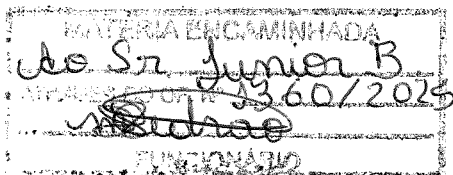 MATÉRIA ENCAMINHADA
Ao Sr. Junior B.
Nº 1360/2025
FUNCIONÁRIO